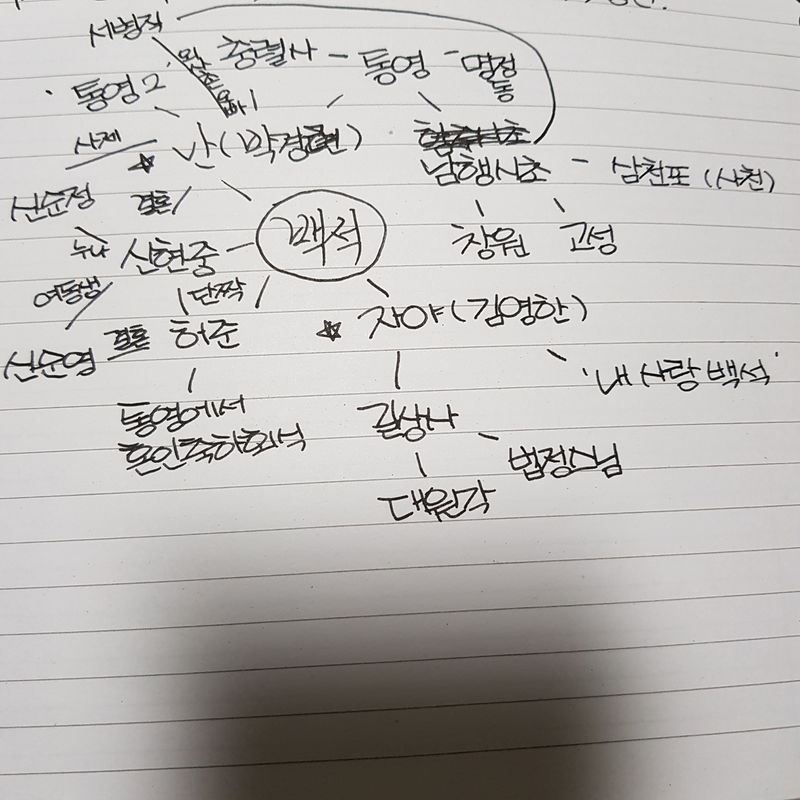 서병직
외사촌 오빠
충렬사 - 통영 - 명정동
통영2
사제
난(박경련)
남행시초 - 삼천포 (사천)
신순정
결혼
백석
창원 고성
누나
신현중
여동생
단짝
신순영 결혼 허준
자야(김영한)
'내 사랑 백석'
통영에서
혼인축하회석
길상사
법정스님
대원각